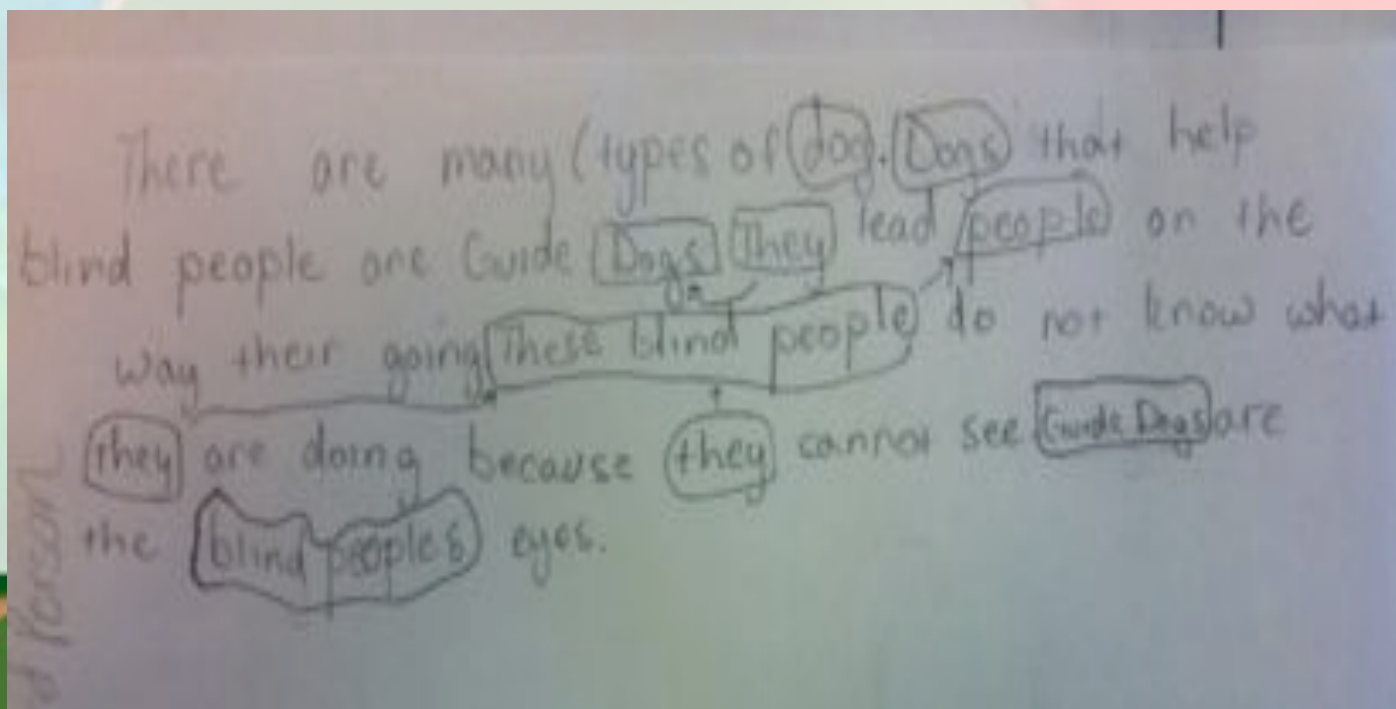 There are many (types of dog. Dogs that help
blind people are Guide Dogs They lead people on the
way their going These blind people do not know what
they are doing because they cannot see Guide Dogs are
the blind peoples eyes.
Person